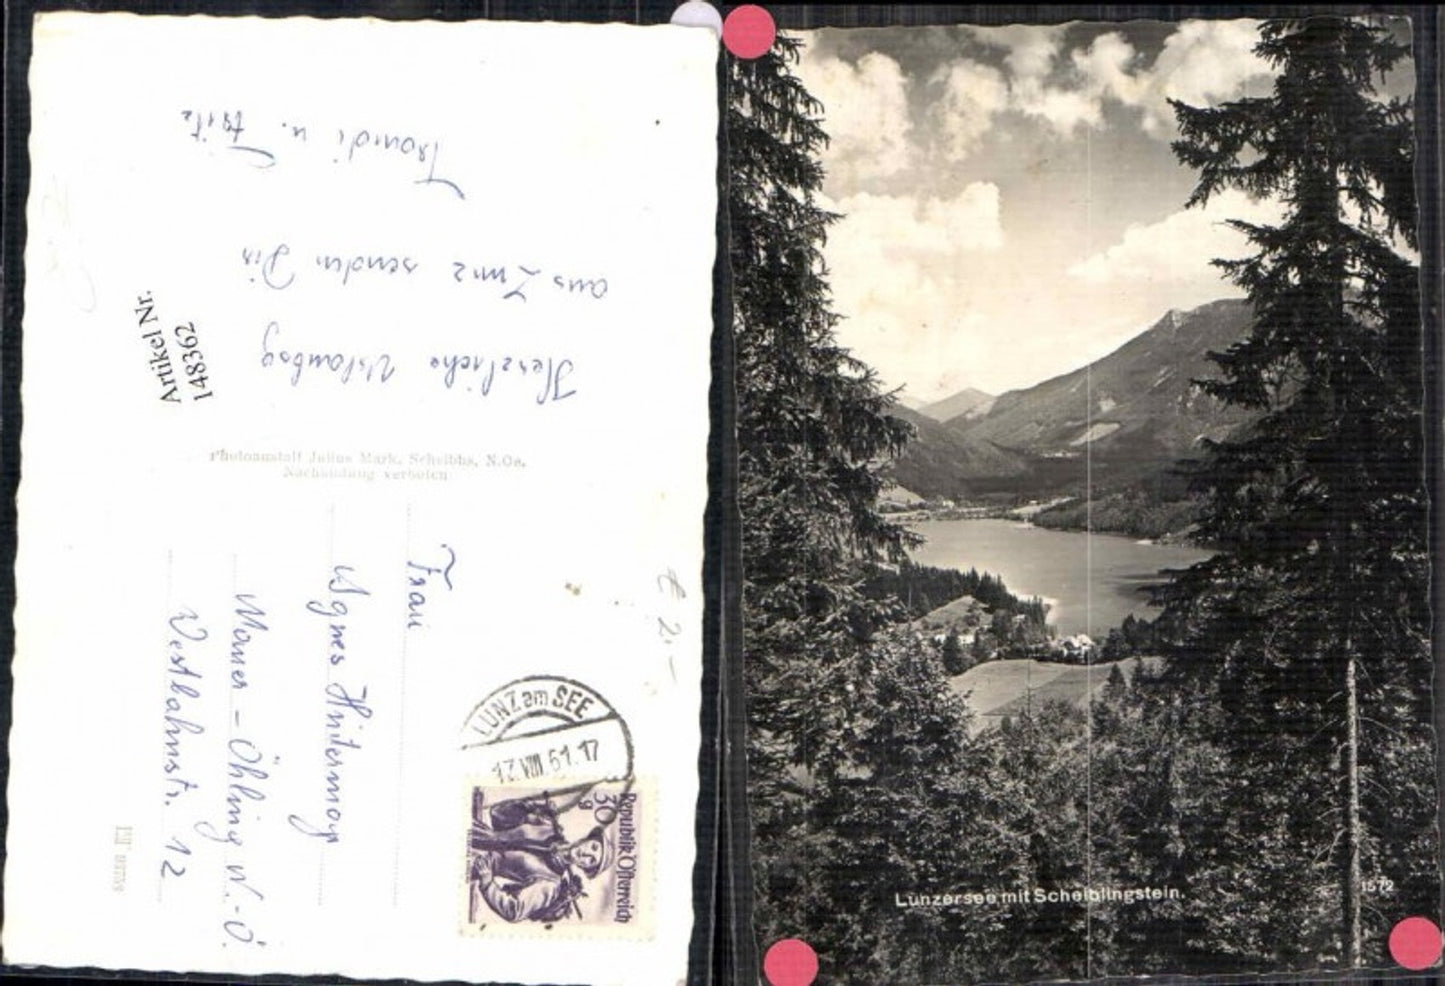 Herzliche Urlaubsg
aus Lunz senden Dir
Traudi u. Fritz
Artikel Nr.
148362
Photoanstalt Julius Mark, Scheibbs, N.Oe.
Nachahmung verboten
Frau
Agnes Hintermayr
Mauer - Öhling N.-Ö.
Westbahnstr. 12
€ 2,-
LUNZ am SEE
12.VIII.51.17
30
g
Republik Österreich
Lunzersee mit Scheiblingstein.
1572